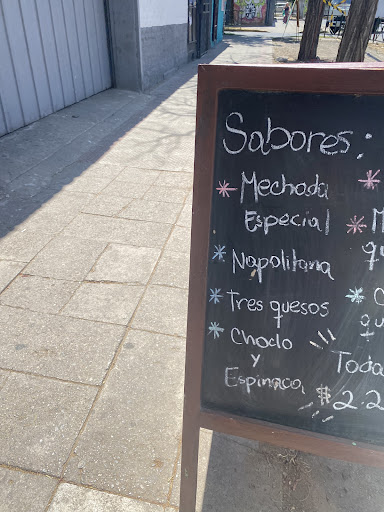 Sabores:
* Mechada
Especial
* Napolitana
* Tres quesos
* Choclo
y
Espinaca
*
*
Toda
$2.2